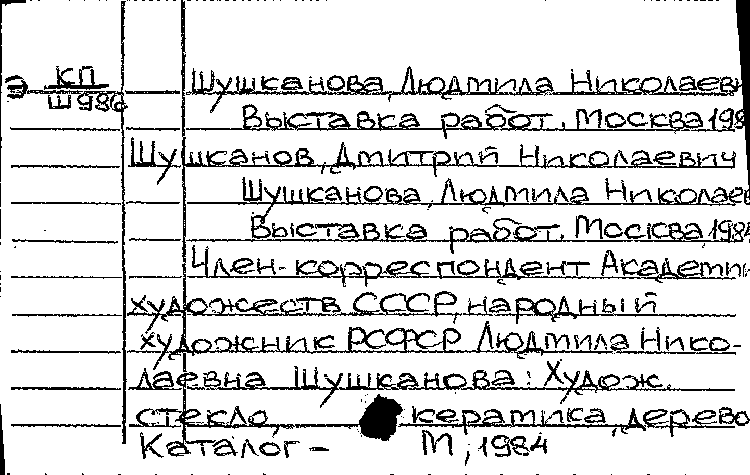 Э КП
Ш986
Шушканова, Людмила Николаев
Выставка работ. Москва 198
Шушканов, Дмитрий Николаевич
Шушканова, Людмила Николаев
Выставка работ. Москва, 1984
Член-корреспондент Академии
художеств СССР, народный
художник РСФСР Людмила Нико-
лаевна Шушканова: Худож.
стекло, керамика, дерево
Каталог – М, 1984